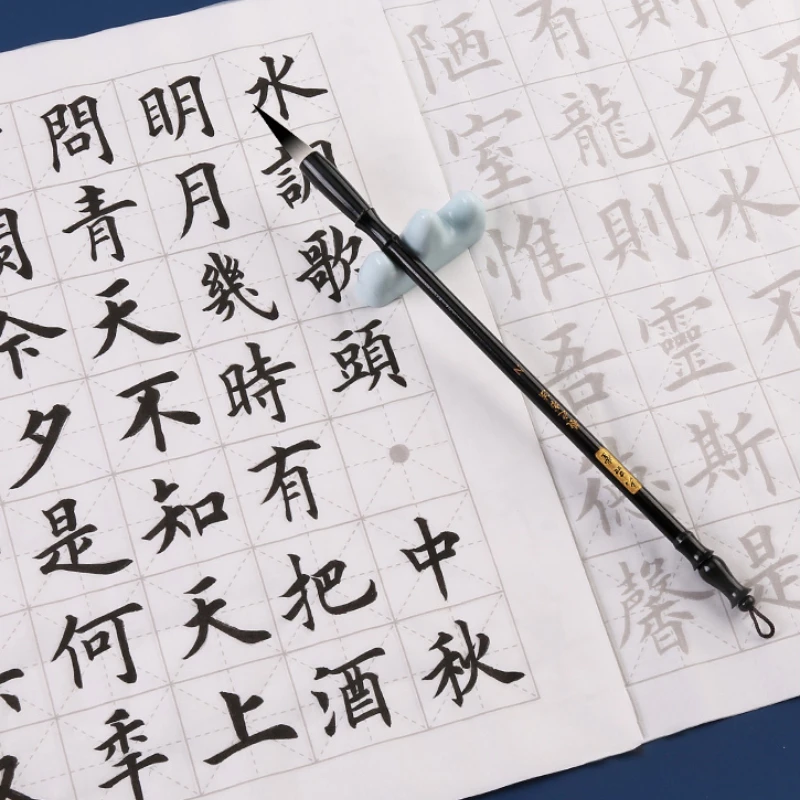 水調歌頭·中秋
明月幾時有把酒
問青天不知天上
闕今夕是何年
則名水不
有龍則靈斯是
陋室惟吾德馨